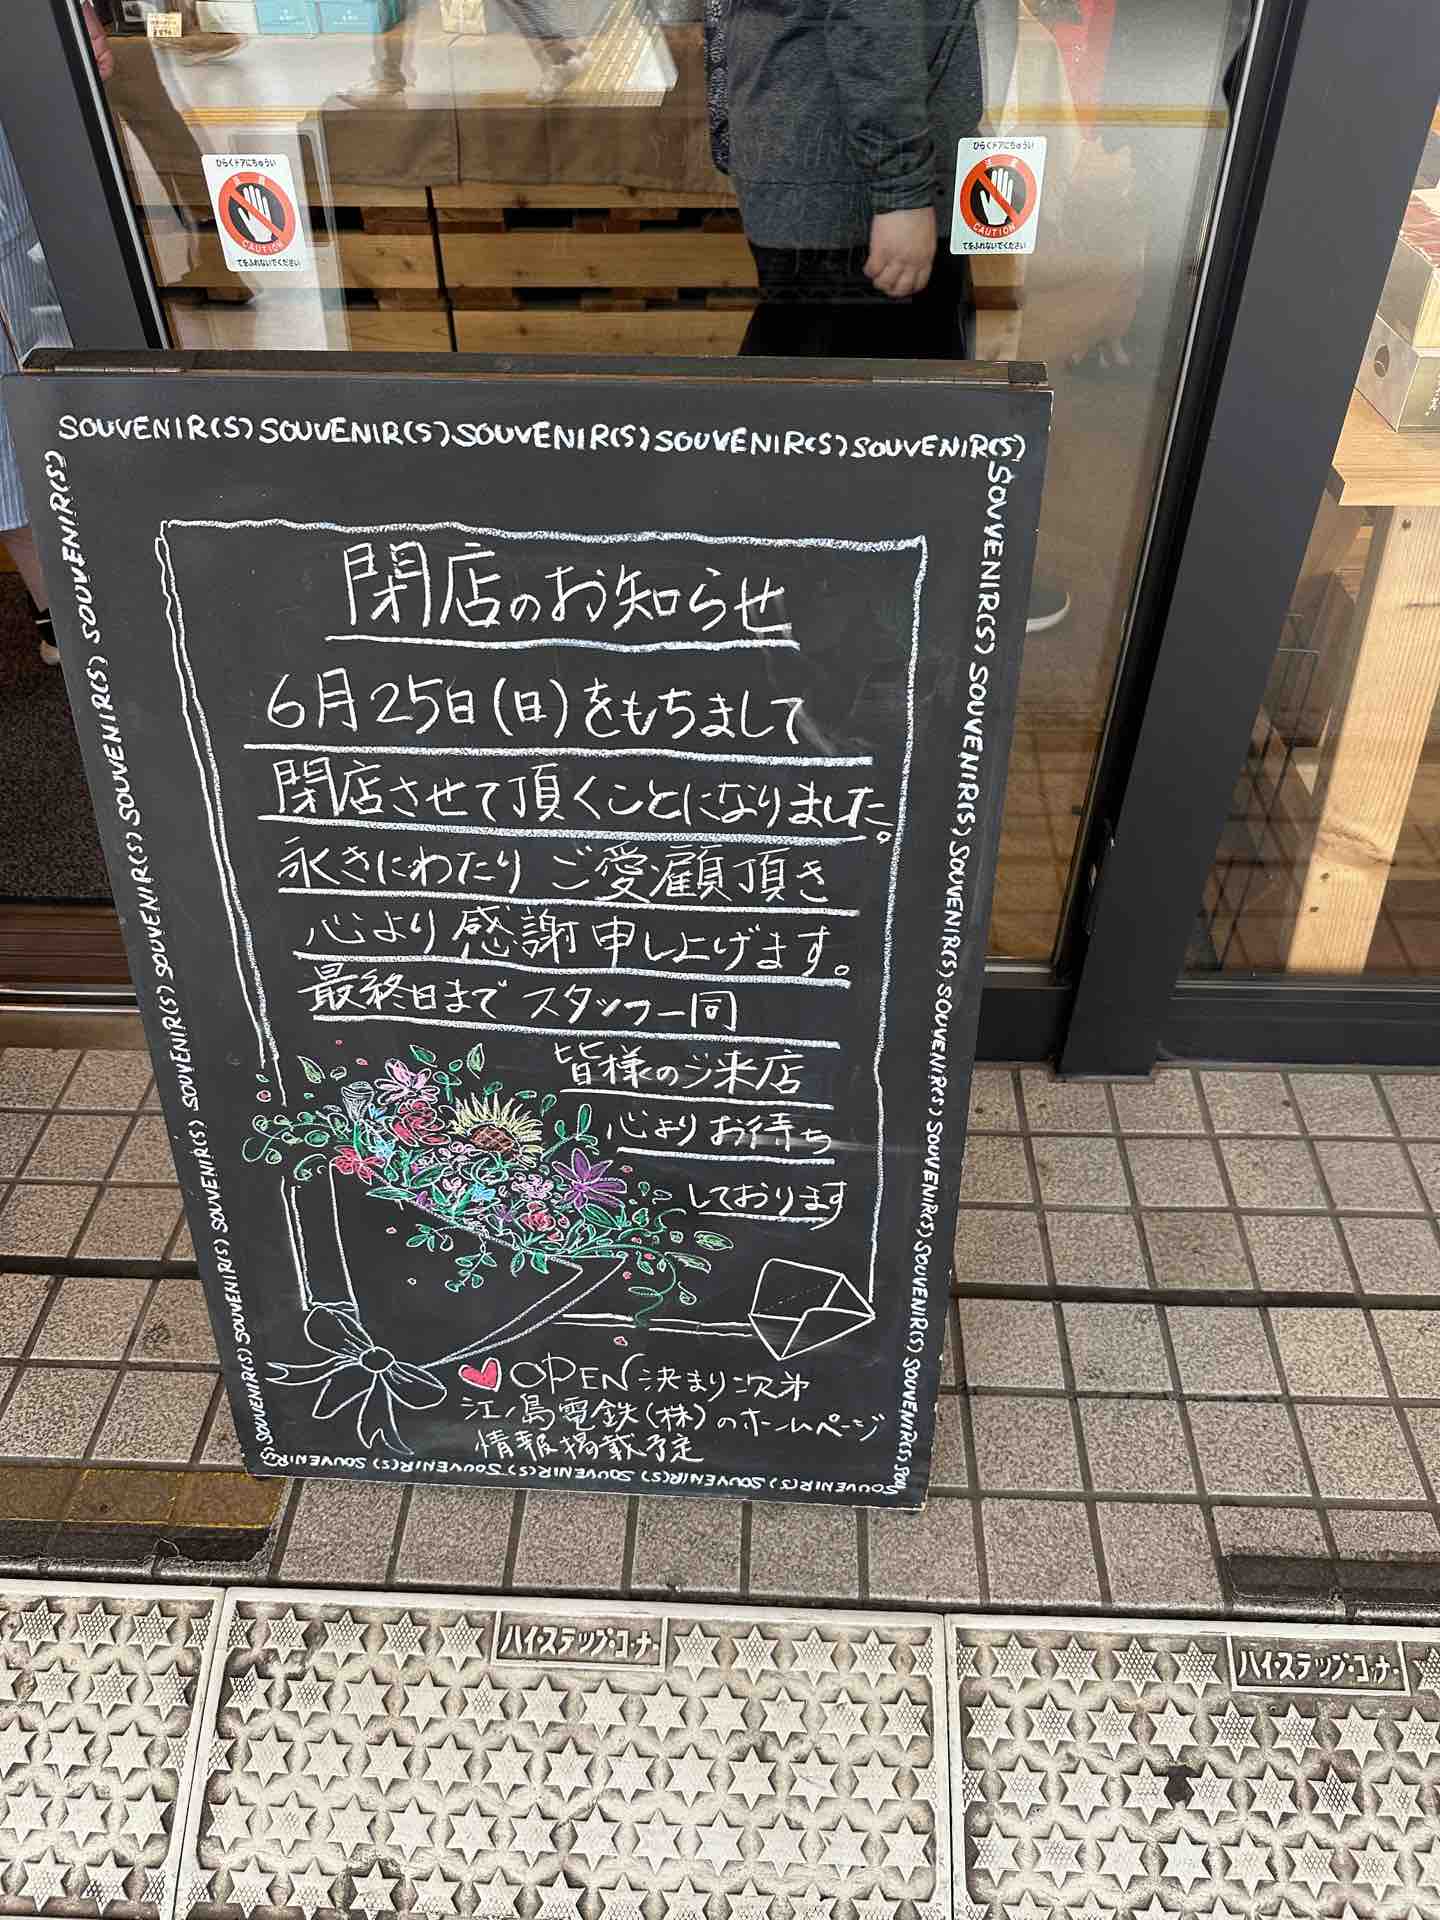 ひらくドアにちゅうい
注意
CAUTION
てをふれないでください
ひらくドアにちゅうい
注意
CAUTION
てをふれないでください
SOUVENIR(S) SOUVENIR(S) SOUVENIR(S) SOUVENIR(S) SOUVENIR(S)
SOUVENIR(S) SOUVENIR(S) SOUVENIR(S) SOUVENIR(S) SOUVENIR(S) SOUVENIR(S) SOUVENIR(S) SOUVENIR(S)
SOUVENIR(S) SOUVENIR(S) SOUVENIR(S) SOUVENIR(S) SOUVENIR(S) SOUVENIR(S) SOUVENIR(S) SOUV
閉店のお知らせ
6月25日(日)をもちまして
閉店させて頂くことになりました。
永きにわたり ご愛顧頂き
心より感謝申し上げます。
最終日まで スタッフ一同
皆様のご来店
心よりお待ち
しております
OPEN 決まり次第
江ノ島電鉄(株)のホームページ
情報掲載予定
SOUVENIR(S) SOUVENIR(S) SOUVENIR(S) SOUVENIR(S) SOUVENIR(S)
ハイ・ステップ・コーナー
ハイ・ステップ・コーナー